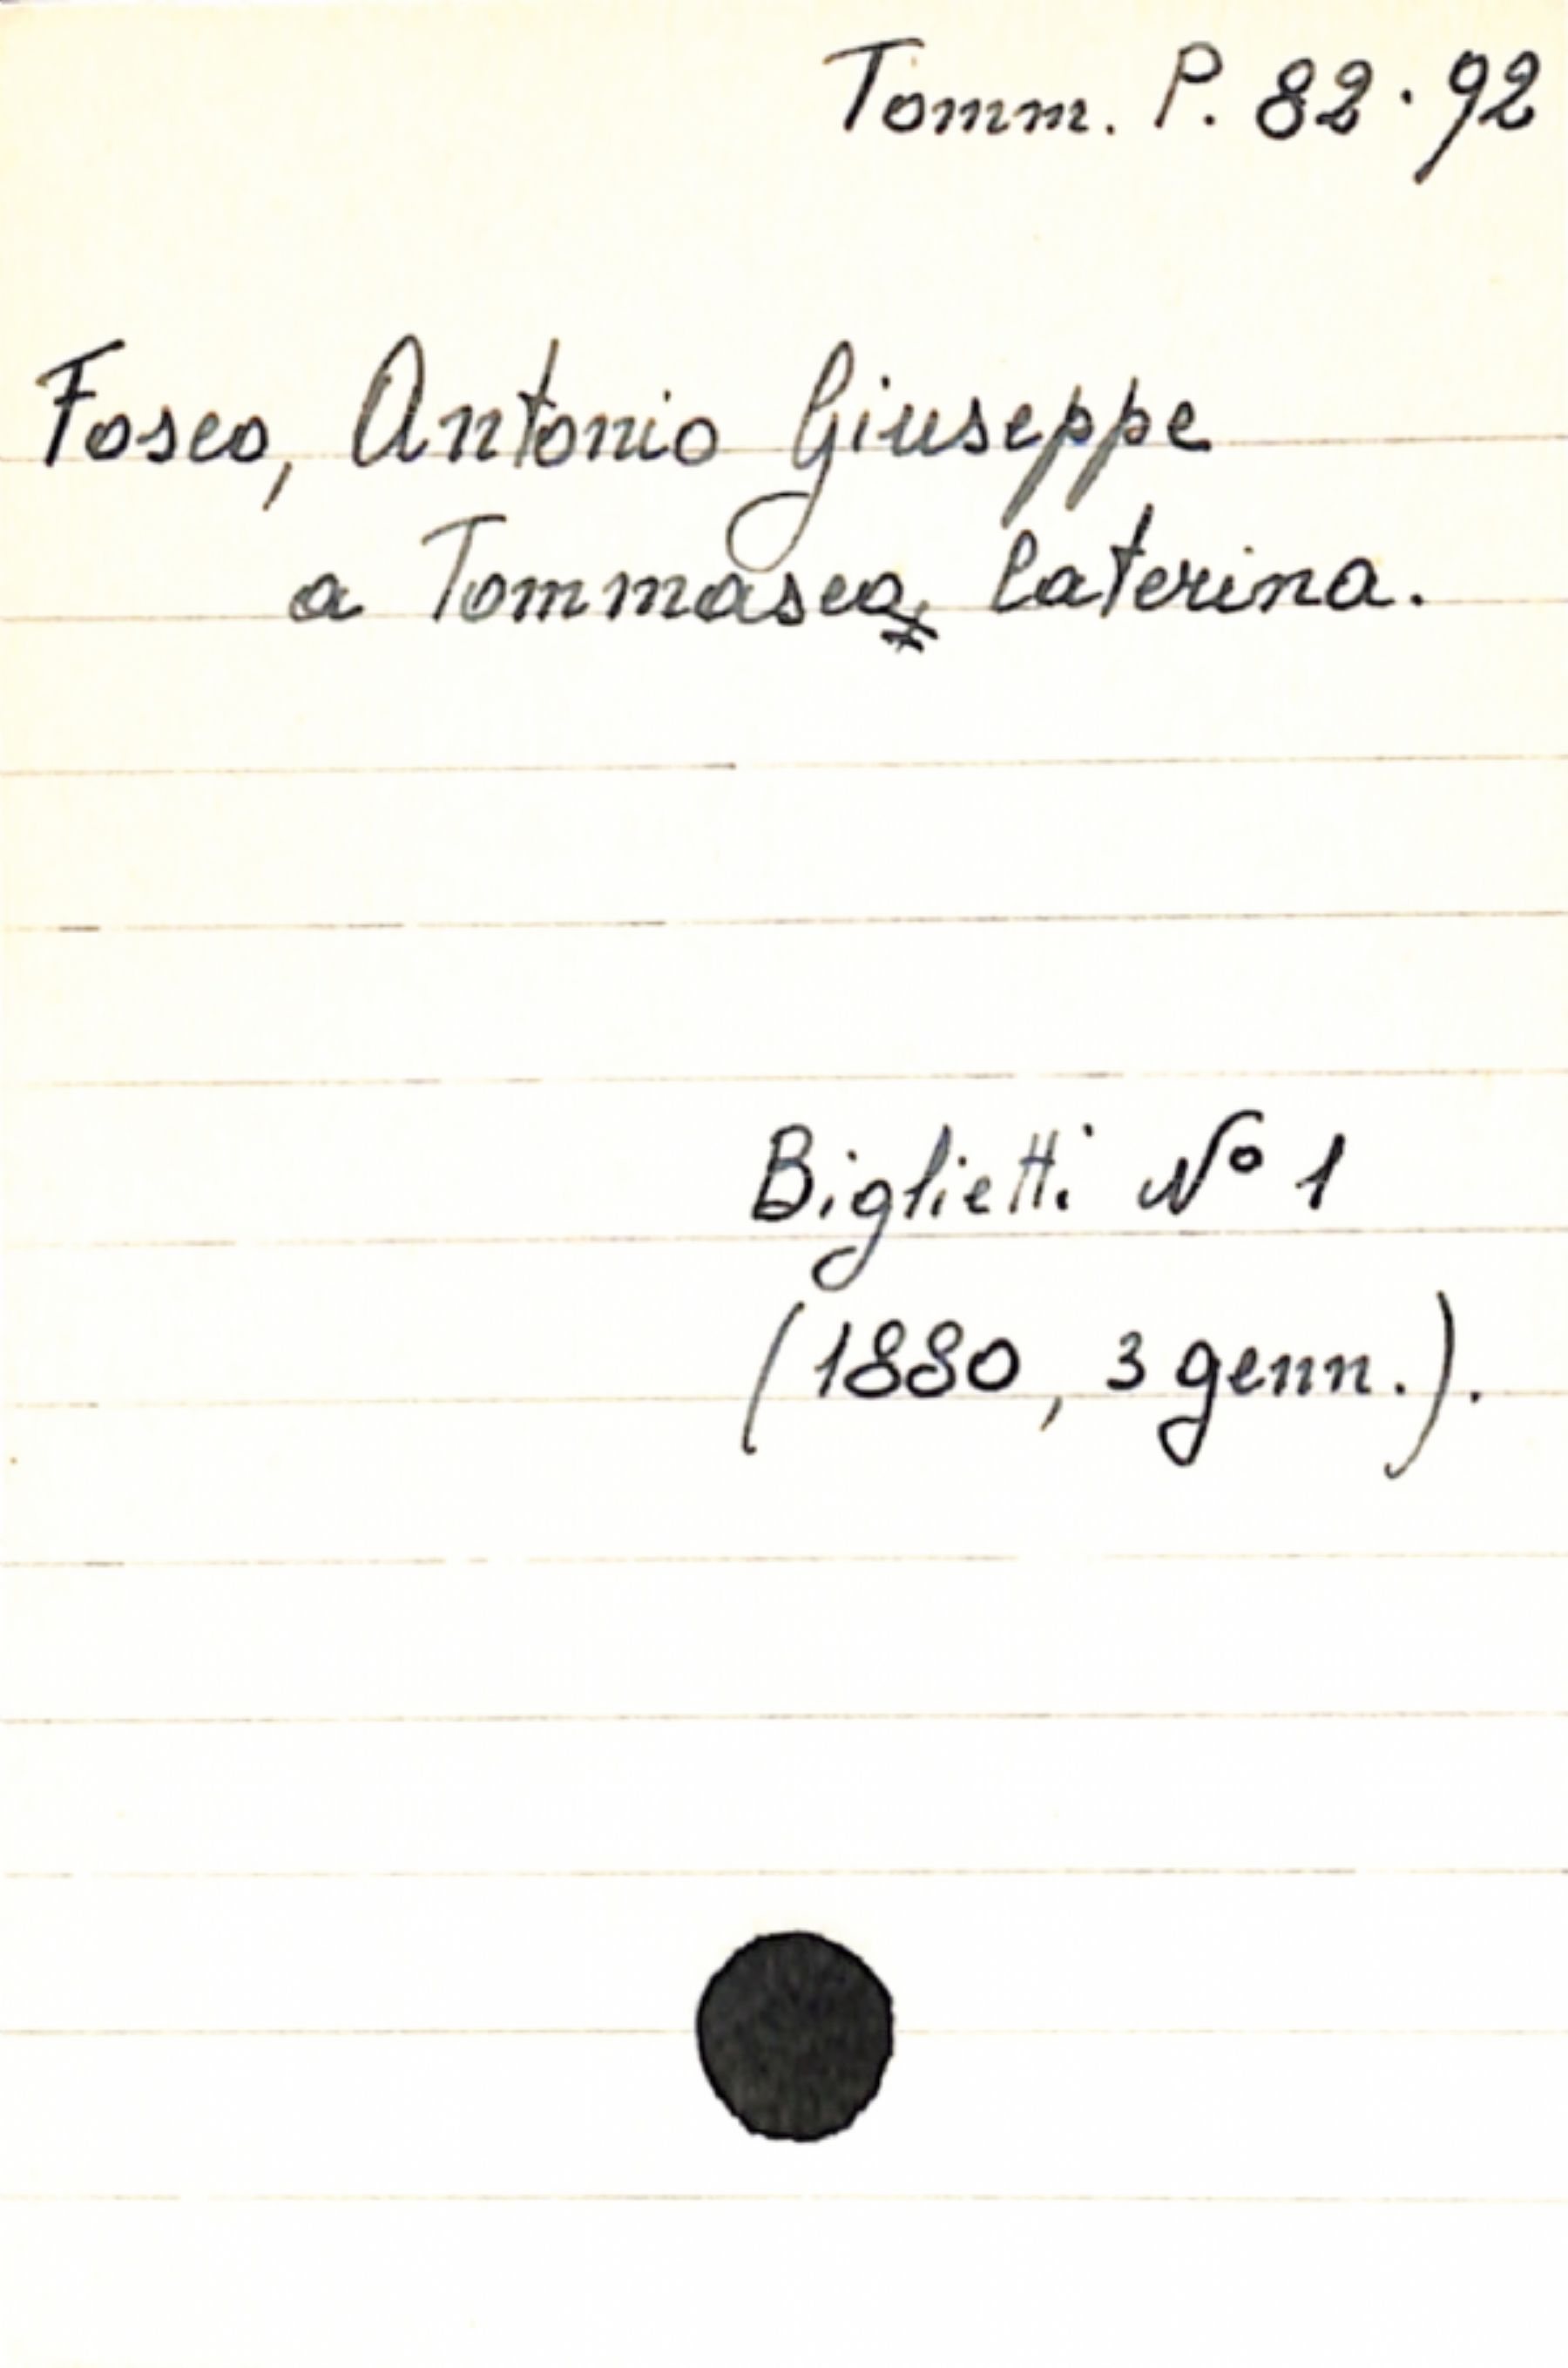 Tomm. P. 82.92
Fosco, Antonio Giuseppe
a Tommaseo, Caterina.
Biglietti N° 1
(1880, 3 genn.).